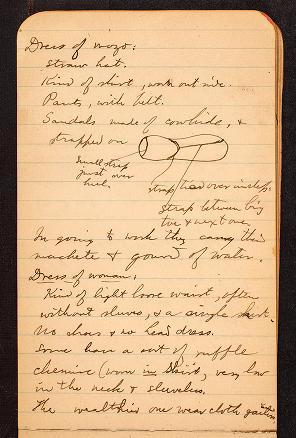 Dress of mozo:
Straw hat.
Kind of shirt, worn outside.
Pants, with belt.
Sandals made of cowhide, &
strapped on
Small strap
just over
heel.
strap tied over instep.
Strap between big
toe & next one.
In going to work they carry their
machete & gourd of water.
Dress of woman:
Kind of light loose waist, often
without sleeves, & a single skirt.
No shoes & no head dress.
Some have a sort of ruffle
chemise (worn in skirt), very low
in the neck & sleeveless.
The wealthier one wear cloth gaiters